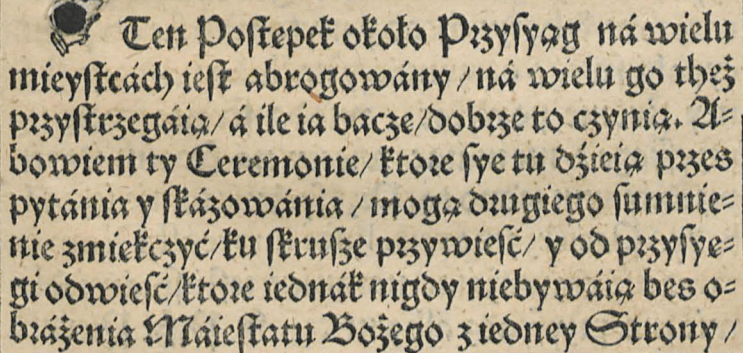 Ten Poſtepek około Przyſyąg ná wielu
mieyſtcách ieſt abrogowány / ná wielu go theż
przyſtrzegáią / á ile ia bacze / dobrze to czynią. A⸗
bowiem ty Ceremonie / ktore ſye tu dźieią przes
pytánia y ſkázowánia / mogą drugiego ſumnie⸗
nie zmiekczyć / ku ſkruſze przywieść / y od przyſye⸗
gi odwieść / ktore iednák nigdy niebywáią bes o⸗
bráżenia Máieſtatu Bożego z iedney Strony /